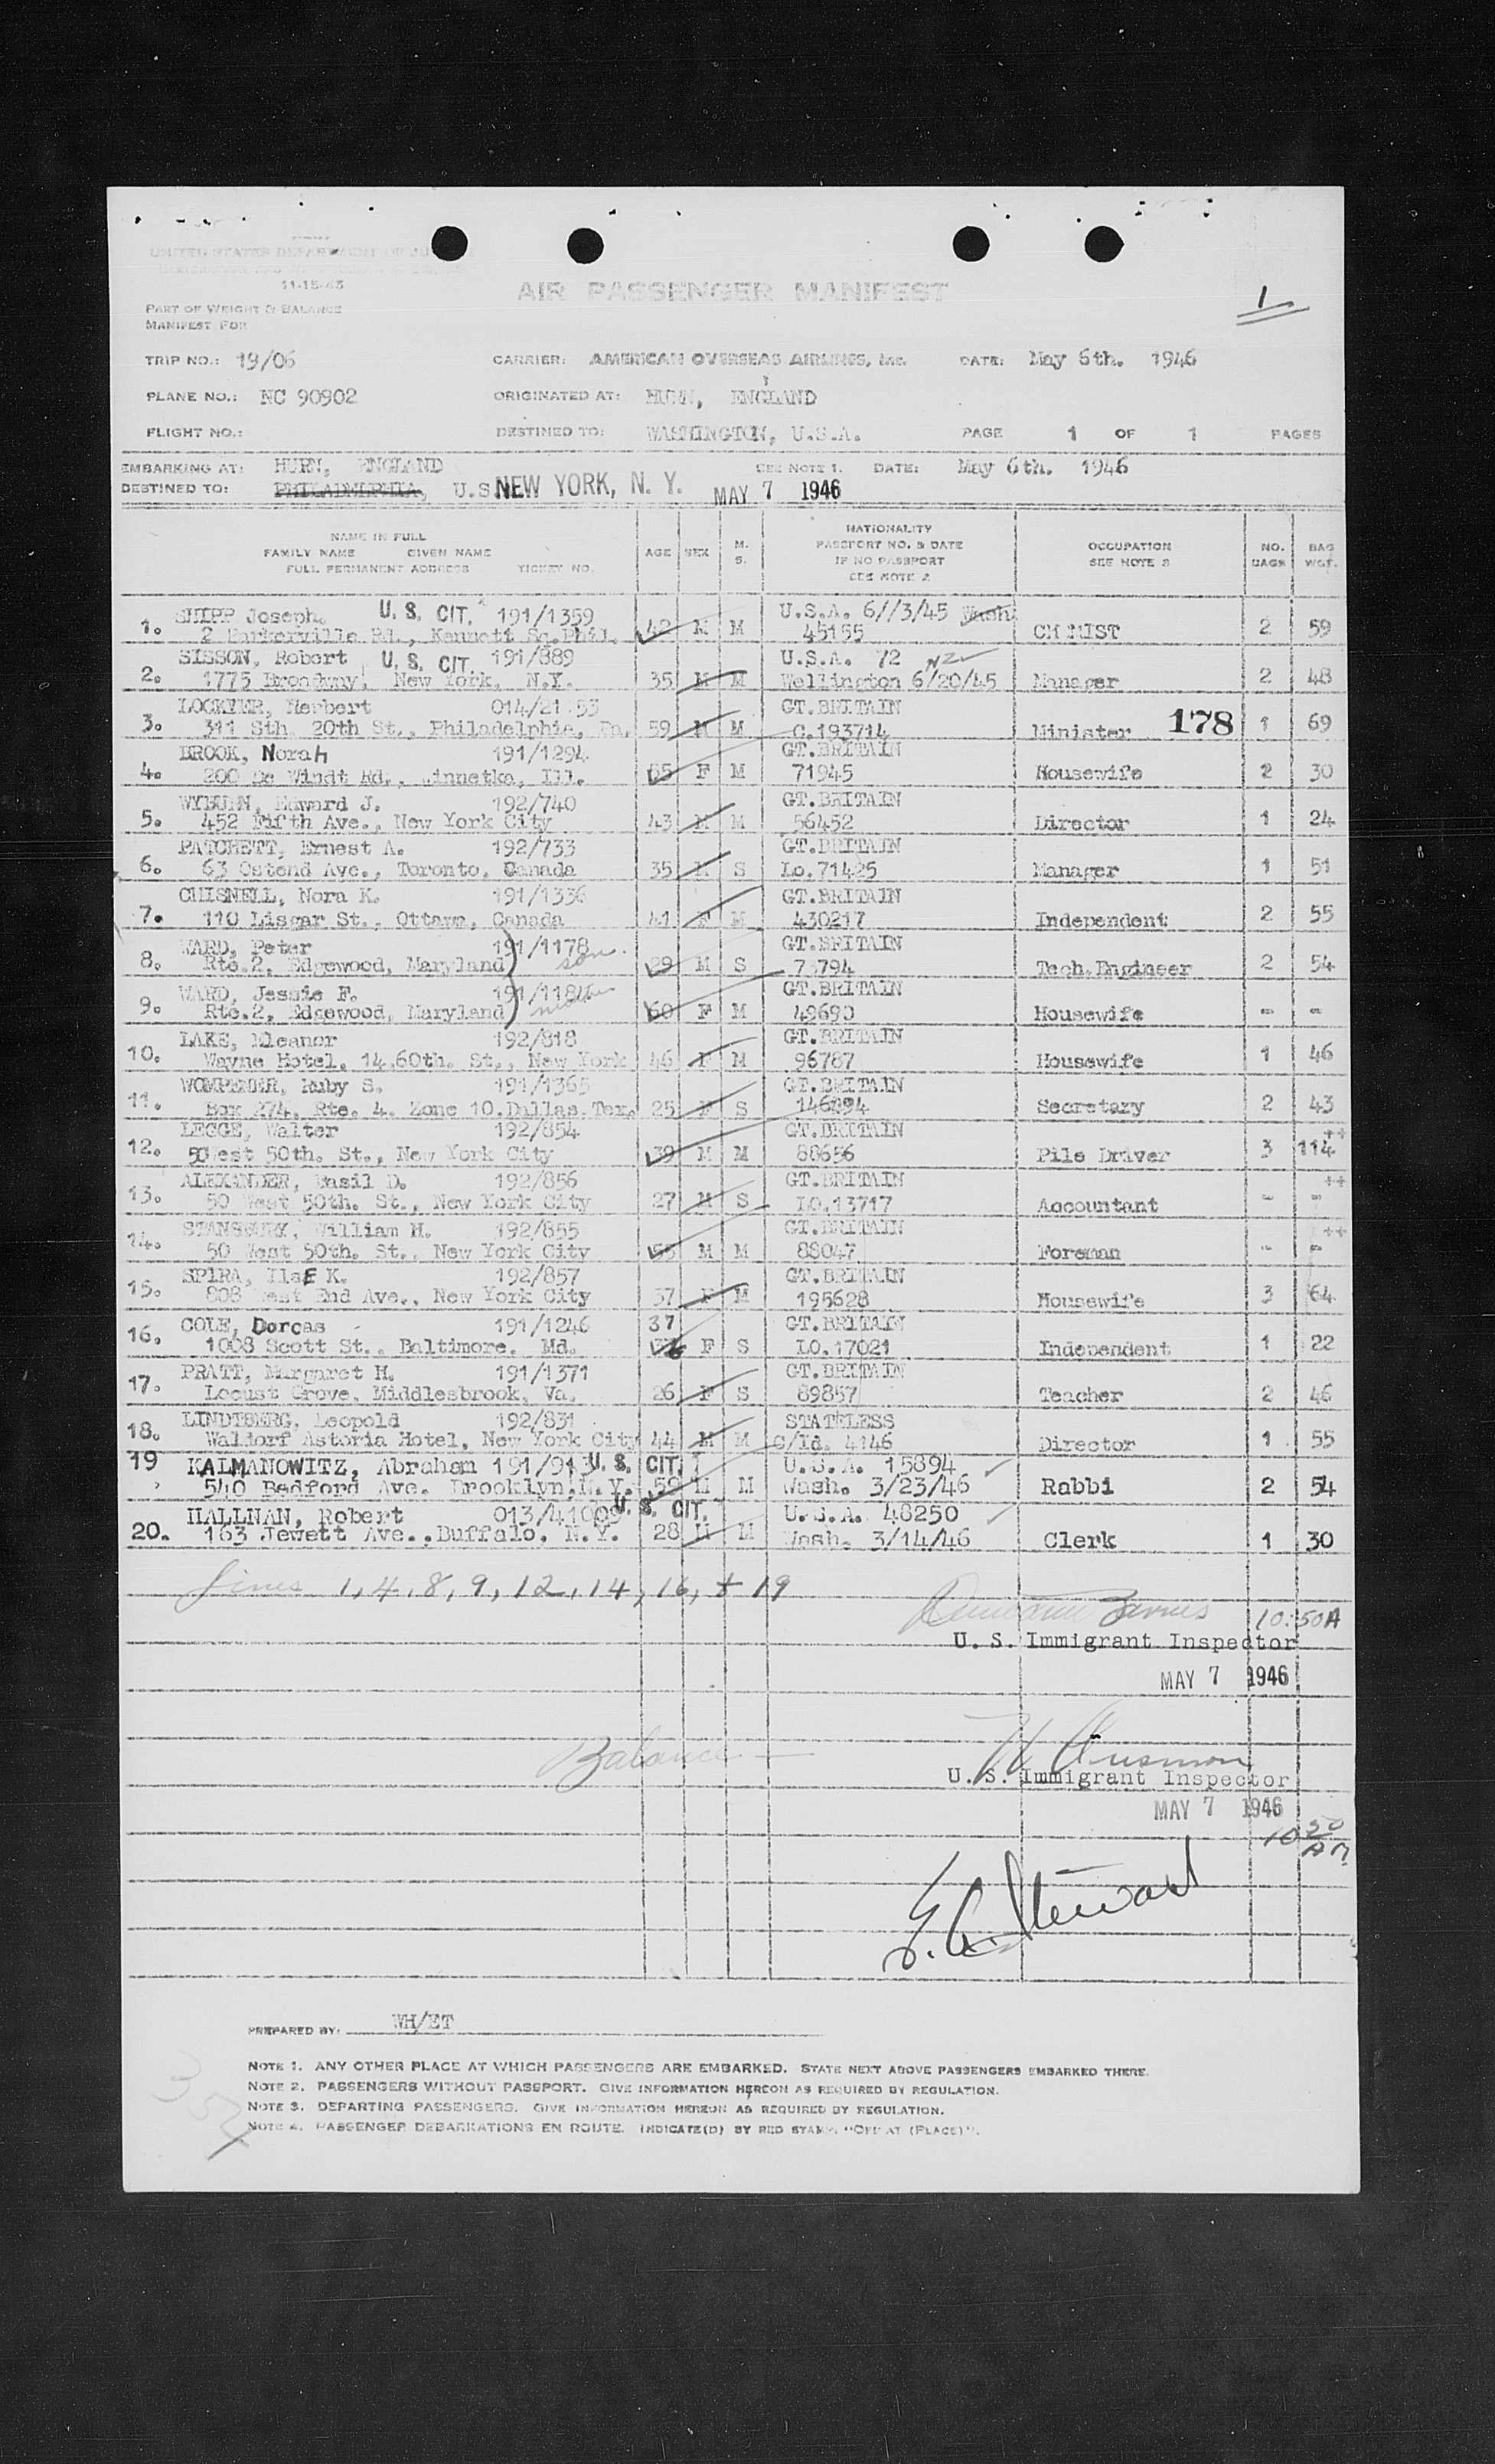 UNITED STATES DEPARTMENT OF
11-15-43
AIR PASSENGER MANIFEST
1
PART OF WEIGHT & BALANCE
MANIFEST FOR
TRIP NO.: 19/06 CARRIER: AMERICAN OVERSEAS AIRLINES, Inc. DATE: May 6th. 1946
PLANE NO.: NC 90902 ORIGINATED AT: HURN, ENGLAND
FLIGHT NO.: DESTINED TO: WASHINGTON, U.S.A. PAGE 1 OF 1 PAGES
EMBARKING AT: HURN, ENGLAND SEE NOTE 1. DATE: May 6th. 1946
DESTINED TO: PHILADELPHIA, U.S. NEW YORK, N. Y. MAY 7 1946
NAME IN FULL
FAMILY NAME GIVEN NAME
FULL PERMANENT ADDRESS TICKET NO.
AGE SEX M. S.
NATIONALITY
PASSPORT NO. & DATE
IF NO PASSPORT
SEE NOTE 2
OCCUPATION
SEE NOTE 3
NO. BAGS
BAG WGT.
SHIPP Joseph. U. S. CIT. 191/1359 U.S.A. 6//3/45 Wash
1. 2 Barkerville Rd., Kennett Sq.Phil. 42 M M 45155 CH MIST 2 59
SISSON, Robert U. S. CIT. 191/889 U.S.A. 72 NZ
2. 1775 Broadway, New York, N.Y. 35 M M Wellington 6/20/45 Manager 2 48
LOCKYER, Herbert 014/21 53 GT.BRITAIN
3. 311 Sth 20th St., Philadelphia, Pa. 59 M M C.193714 Minister 178 1 69
BROOK, Norah 191/1294 GT.BRITAIN
4. 200 De Windt Rd., Winnetka, Ill. F M 71945 Housewife 2 30
WYBURN, Edward J. 192/740 GT.BRITAIN
5. 452 Fifth Ave., New York City 43 M M 56452 Director 1 24
PATCHETT, Ernest A. 192/733 GT.BRITAIN
6. 63 Ostend Ave., Toronto. Canada 35 M S Lo.71425 Manager 1 51
CHISNELL, Nora K. 191/1336 GT.BRITAIN
7. 110 Lisgar St., Ottawa, Canada 41 F M 430217 Independent 2 55
WARD, Peter 191/1178 son. GT.BRITAIN
8. Rte.2, Edgewood, Maryland 29 M S 7 794 Tech.Engineer 2 54
WARD, Jessie F. 191/118 mother GT.BRITAIN
9. Rte.2, Edgewood, Maryland 60 F M 49690 Housewife - -
LAKE, Eleanor 192/818 GT.BRITAIN
10. Wayne Hotel, 14.60th. St., New York 46 F M 96787 Housewife 1 46
Ruby S. 191/1365 GT.BRITAIN
11. Box 274, Rte. 4. Zone 10.Dallas.Tex. 25 F S 146894 Secretary 2 43
LEGGE, Walter 192/854 GT.BRITAIN ++
12. 50West 50th. St., New York City 39 M M 88656 Pile Driver 3 114
ALEXANDER, Basil D. 192/856 GT.BRITAIN ++
13. 50 West 50th. St., New York City 27 M S LO.13717 Accountant - -
STANSBURY, William H. 192/855 GT.BRITAIN ++
14. 50 West 50th. St., New York City M M 88047 Foreman - -
SPIRA, IlsE K. 192/857 GT.BRITAIN
15. 808 West End Ave., New York City 37 F M 195628 Housewife 3 64
COLE, Dorcas 191/1246 37 GT.BRITAIN
16. 1008 Scott St., Baltimore. Md. F S LO.17021 Independent 1 22
PRATT, Margaret H. 191/1371 GT.BRITAIN
17. Locust Grove, Middlesbrook, Va. 26 F S 89857 Teacher 2 46
LINDTBERG, Leopold 192/831 STATELESS
18. Waldorf Astoria Hotel, New York City 44 M M C/Id. 4146 Director 1 55
19 KALMANOWITZ, Abraham 191/913 U. S. CIT. U.S.A. 15894
540 Bedford Ave. Brooklyn.N.Y. 59 M M Wash. 3/23/46 Rabbi 2 54
HALLNAN, Robert 013/41009 U. S. CIT. U.S.A. 48250
20. 163 Jewett Ave.,Buffalo, N.Y. 28 M M Wash. 3/14/46 Clerk 1 30
Lines 1, 4, 8, 9, 12, 14, 16, + 19
10:50A
U. S. Immigrant Inspector
MAY 7 1946
Balance —
U. S. Immigrant Inspector
MAY 7 1946
10 50 AM
Stewart
PREPARED BY: WH/ET
NOTE 1. ANY OTHER PLACE AT WHICH PASSENGERS ARE EMBARKED. STATE NEXT ABOVE PASSENGERS EMBARKED THERE.
NOTE 2. PASSENGERS WITHOUT PASSPORT. GIVE INFORMATION HEREON AS REQUIRED BY REGULATION.
NOTE 3. DEPARTING PASSENGERS. GIVE INFORMATION HEREON AS REQUIRED BY REGULATION.
NOTE 4. PASSENGER DEBARKATIONS EN ROUTE. INDICATE(D) BY RED STAMP "OFF AT (PLACE)".